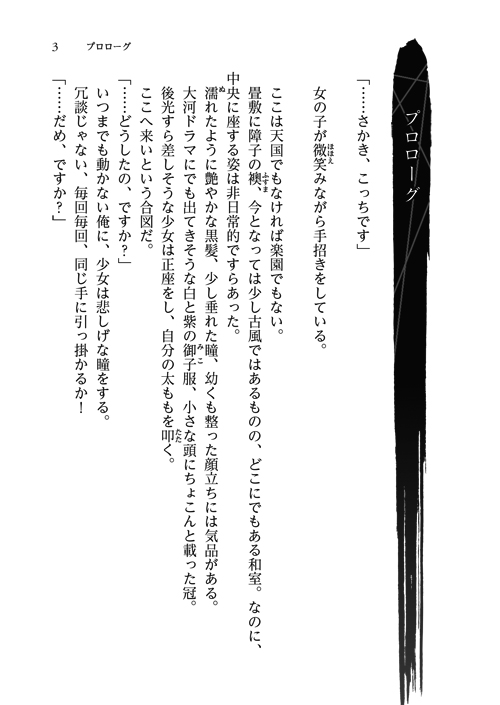 プロローグ
「……さかき、こっちです」
女の子が微笑みながら手招きをしている。
ここは天国でもなければ楽園でもない。
畳敷に障子の襖、今となっては少し古風ではあるものの、どこにでもある和室。なのに、
中央に座する姿は非日常的ですらあった。
濡れたように艶やかな黒髪、少し垂れた瞳、幼くも整った顔立ちには気品がある。
大河ドラマにでも出てきそうな白と紫の御子服、小さな頭にちょこんと載った冠。
後光すら差しそうな少女は正座をし、自分の太ももを叩く。
ここへ来いという合図だ。
「……どうしたの、ですか?」
いつまでも動かない俺に、少女は悲しげな瞳をする。
冗談じゃない、毎回毎回、同じ手に引っ掛かるか!
「……だめ、ですか?」
3 プロローグ